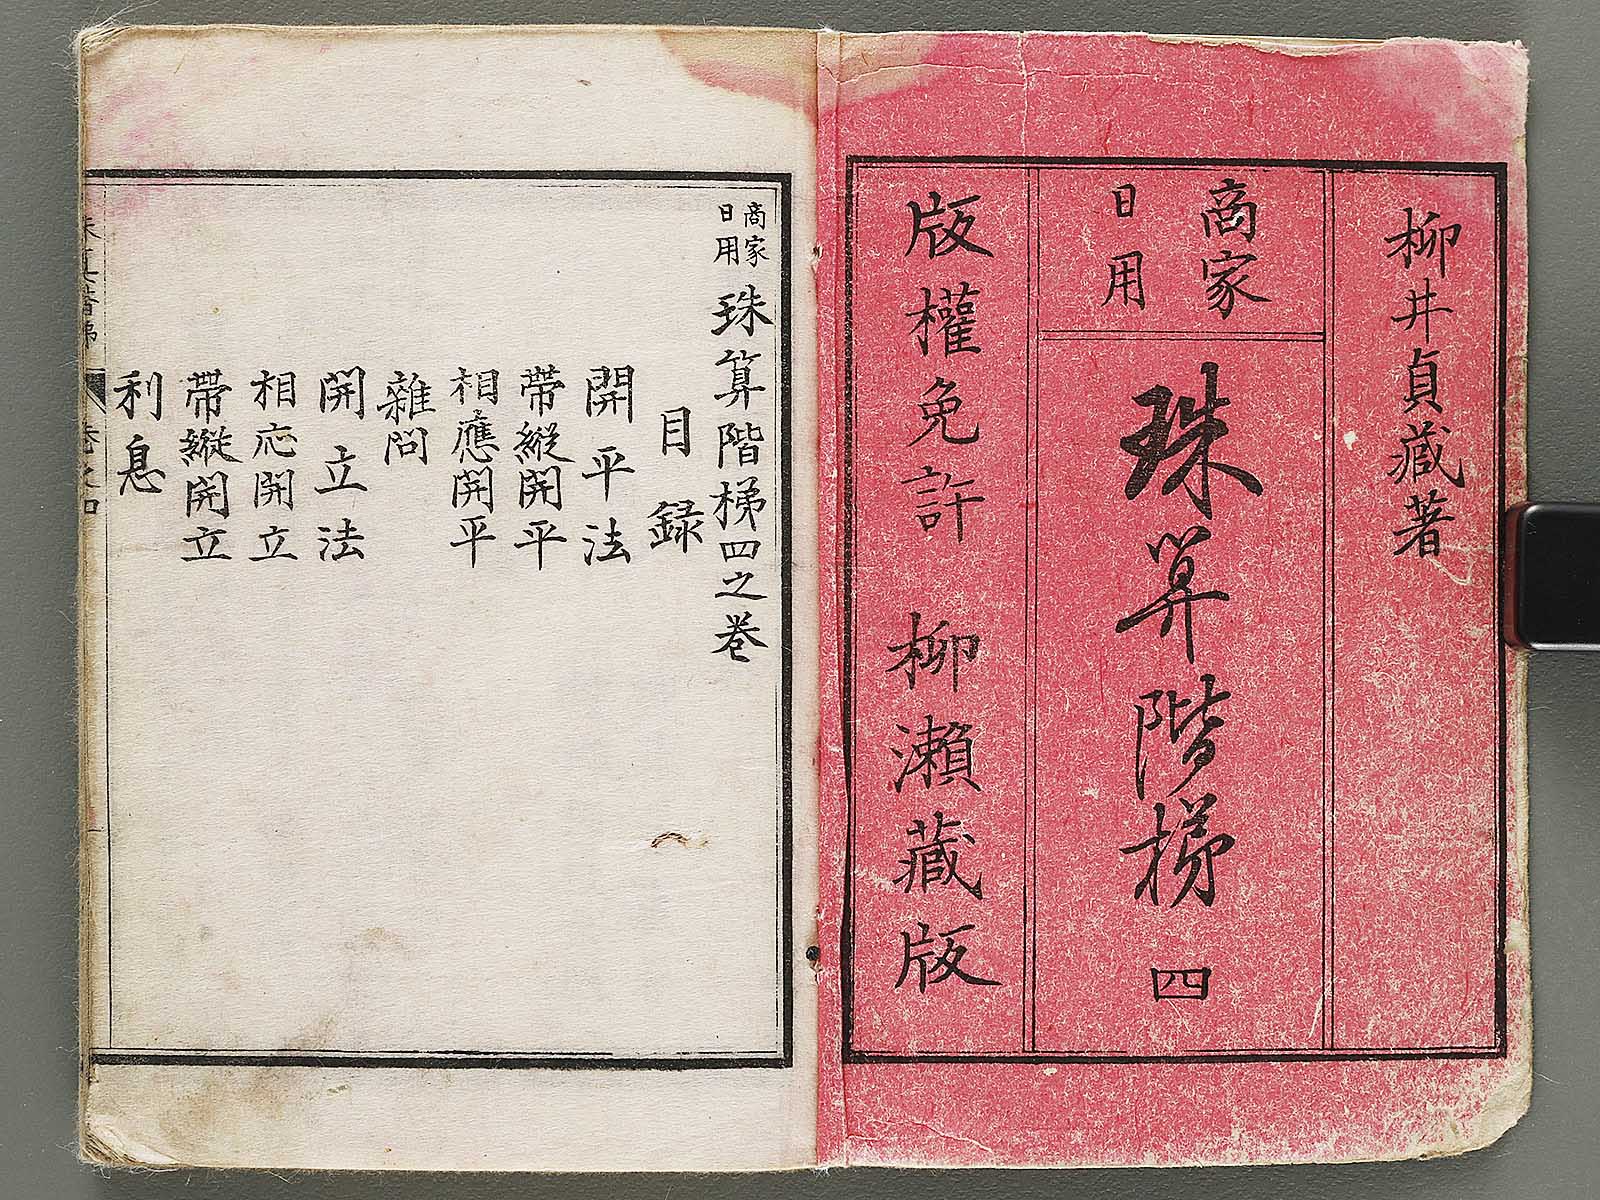 柳井貞藏著
商家
日用
珠算階梯 四
版權免許 柳瀬藏版
商家
日用
珠算階梯四之巻
目録
開平法
帯縦開平
相應開平
雜問
開立法
相応開立
帯縦開立
利息